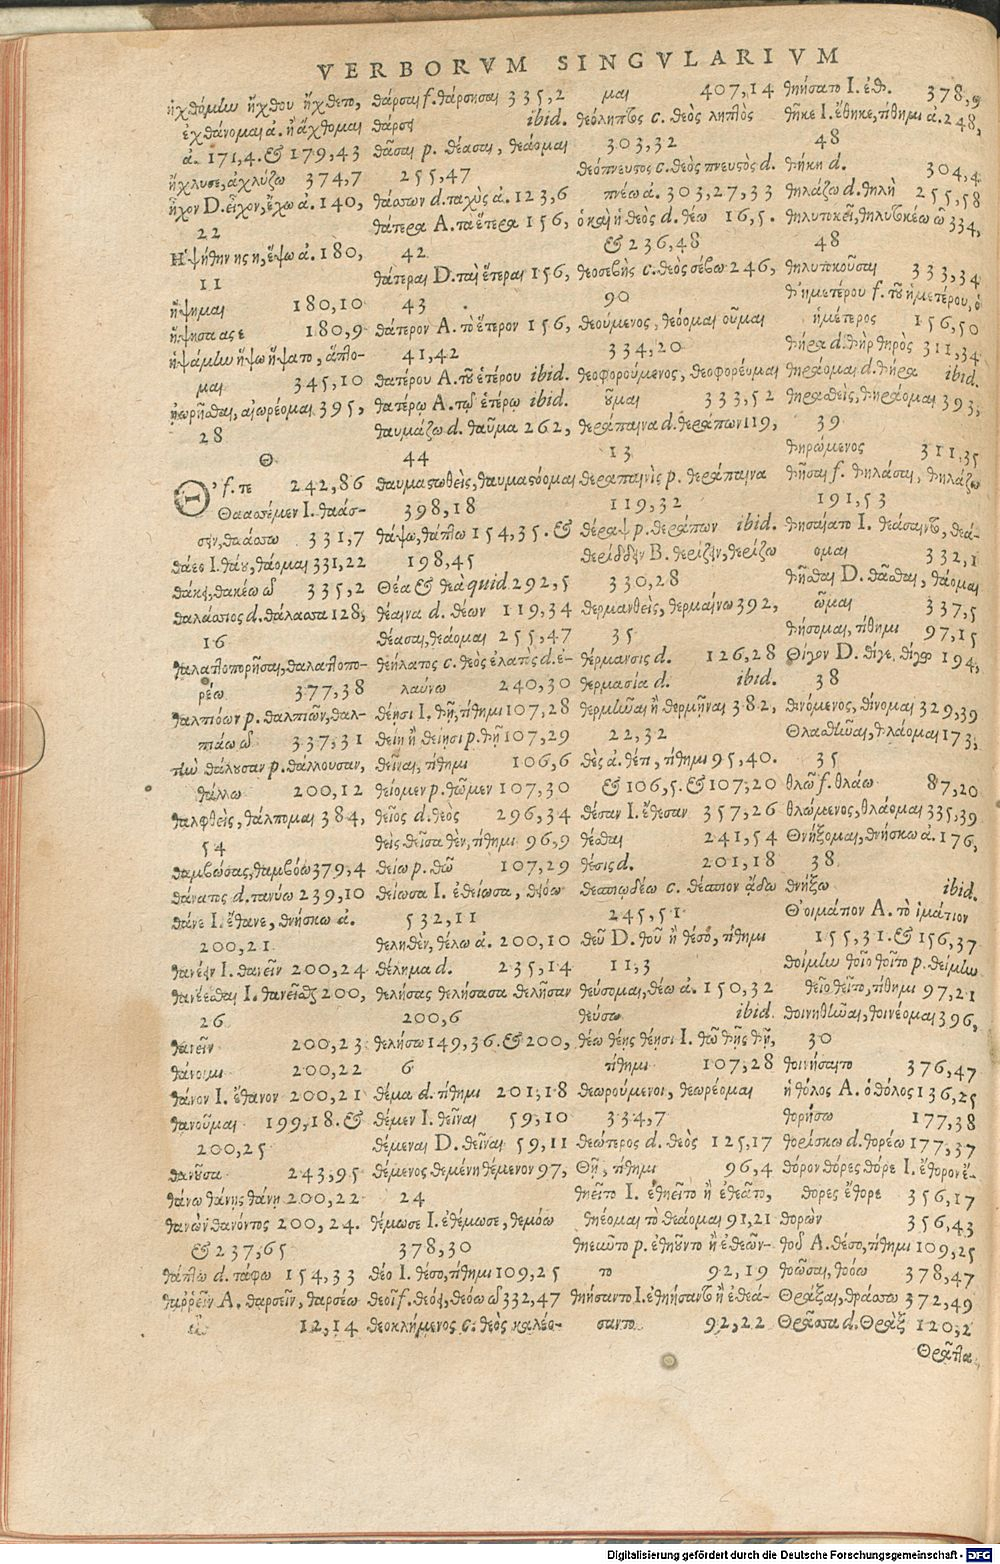 VERBORVM SINGVLARIVM
ἠχθόμην ἤχθου ἤχθετο,
ἐχθάνομαι α. ἢ ἄχθομαι
α. 171,4. & 179,43
ἤχλυσε, ἀχλύζω 374,7
ἦχον D. εἶχον, ἔχω α. 140,
22
Ἡψήθην ης η, ἕψω α. 180,
11
ἥψημαι 180,10
ἥψησα ας ε 180,9
ἡψάμην ἥψω ἥψατο, ἅπτο-
μαι 345,10
ᾐωρῆσθαι, αἰωρέομαι 395,
28
Θ
Θ' f. τε 242,86
Θαασσέμεν I. θαάσ-
σειν, θαάσσω 331,7
θάεο I. θάου, θάομαι 331,22
θάκει, θακέω ῶ 335,2
θαλάσσιος d. θάλασσα 128,
16
θαλαττοπορῆσαι, θαλαττοπο-
ρέω 377,38
θαλπιόων p. θαλπιῶν, θαλ-
πιάω ῶ 337,31
τὴν θάλουσαν p. θάλλουσαν,
θάλλω 200,12
θαλφθεὶς, θάλπομαι 384,
54
θαμβώσας, θαμβόω 379,4
θάνατος d. τανύω 239,10
θάνε I. ἔθανε, θνήσκω α.
200,21
θανέειν I. θανεῖν 200,24
θανέεσθαι I. θανεῖσθαι 200,
26
θανεῖν 200,23
θάνοιμι 200,22
θάνον I. ἔθανον 200,21
θανοῦμαι 199,18. &
200,25
θανοῦσα 243,95
θάνω θάνῃς θάνῃ 200,22
θανὼν θανόντος 200,24.
& 237,65
θάπτω d. τάφω 154,33
θαῤῥεῖν A. θαρσεῖν, θαρσέω
ῶ 12,14
θάρσαι f. θάρσησαι 335,2
θάρσει ibid.
θᾶσαι p. θέασαι, θεάομαι
255,47
θάσσων d. ταχὺς α. 123,6
θάτερα A. τὰ ἕτερα 156,
42
θάτεραι D. ταὶ ἕτεραι 156,
43
θάτερον A. τὸ ἕτερον 156,
41,42
θατέρου A. τοῦ ἑτέρου ibid.
θατέρῳ A. τῷ ἑτέρῳ ibid.
θαυμάζω d. θαῦμα 262,
44
θαυμαστωθεὶς, θαυμαστόομαι
398,18
θάψω, θάπτω 154,35. &
198,45
Θέα & θεὰ quid 292,5
θέαινα d. θέων 119,34
θέασαι, θεάομαι 255,47
θεήλατος c. θεὸς ἐλατὸς d. ἐ-
λαύνω 240,30
θέῃσι I. θῇ, τίθημι 107,28
θείη ἢ θείῃσι p. θῇ 107,29
θεῖναι, τίθημι 106,6
θείομεν p. θῶμεν 107,30
θεῖος d. θεὸς 296,34
θεὶς θεῖσα θὲν, τίθημι 96,9
θείω p. θῶ 107,29
θείωσα I. ἐθείωσα, θειόω
532,11
θεληθὲν, θέλω α. 200,10
θέλημα d. 235,14
θελήσας θελήσασα θελῆσαν
200,6
θελήσω 149,36. & 200,
6
θέμα d. τίθημι 201,18
θέμεν I. θεῖναι 59,10
θέμεναι D. θεῖναι 59,11
θέμενος θεμένη θέμενον 97,
24
θέμωσε I. ἐθέμωσε, θεμόω
378,30
θέο I. θέσο, τίθημι 109,25
θεοῖ f. θεόει, θεόω ῶ 332,47
θεοκλήμενος c. θεὸς καλέο-
μαι 407,14
θεόληπτος c. θεὸς ληπτὸς
303,32
θεόπνευστος c. θεὸς πνευστὸς d.
πνέω α. 303,27,33
ὁ καὶ ἡ θεὸς d. θέω 16,5.
& 236,48
θεοσεβὴς c. θεὸς σέβω 246,
90
θεούμενος, θεόομαι οῦμαι
334,20
θεοφορούμενος, θεοφορέομαι
οῦμαι 333,52
θεράπαινα d. θεράπων 119,
13
θεραπαινὶς p. θεράπαινα
119,32
θέραψ p. θεράπων ibid.
θερίδδειν B. θερίζειν, θερίζω
330,28
θερμανθεὶς, θερμαίνω 392,
35
θέρμανσις d. 126,28
θερμασία d. ibid.
θερμῆναι ἢ θερμῆναι 382,
22,32
θὲς α. θέτι, τίθημι 95,40.
& 106,5. & 107,20
θέσαν I. ἔθεσαν 357,26
θέσθαι 241,54
θέσις d. 201,18
θεσπιῳδέω c. θέσπιον ᾄδω
245,51
θεῦ D. θοῦ ἢ θέσο, τίθημι
11,3
θεύσομαι, θέω α. 150,32
θεύσω ibid.
θέω θέῃς θέῃσι I. θῶ θῇς θῇ,
τίθημι 107,28
θεωρούμενοι, θεωρέομαι
334,7
θεώτερος d. θεὸς 125,17
Θῇ, τίθημι 96,4
θηεῖτο I. ἐθηεῖτο ἢ ἐθεᾶτο,
θηέομαι τὸ θεάομαι 91,21
θηεῦντο p. ἐθηοῦντο ἢ ἐθεῶν-
το 92,19
θηήσαντο I. ἐθηήσαντο ἢ ἐθεά-
σαντο 92,22
θηήσατο I. ἐθ. 378,9
θῆκε I. ἔθηκε, τίθημι α. 248,
48
θήκη d. 304,4
θηλάζω d. θηλὴ 255,58
θηλυτοκεῖ, θηλυτοκέω ῶ 334,
48
θηλυτοκοῦσαι 333,34
θ' ἡμετέρου f. τοῦ ἡμετέρου, ὁ
ἡμέτερος 156,50
θήρα d. θὴρ θηρὸς 311,34
θηράομαι d. θήρα ibid.
θηραθεὶς, θηράομαι 393,
39
θηρώμενος 311,35
θῆσαι f. θηλάσαι, θηλάζω
191,53
θησαίατο I. θεάσαιντο, θεά-
ομαι 332,1
θῆσθαι D. θᾶσθαι, θάομαι
ῶμαι 337,5
θήσομαι, τίθημι 97,15
Θίγον D. θίγε, θίγω 194,
38
θινόμενος, θίνομαι 329,39
Θλασθῆναι, θλάομαι 173,
35
θλῶ f. θλάω 87,20
θλώμενος, θλάομαι 335,39
Θνήξομαι, θνήσκω α. 176,
38
θνήξω ibid.
Θοἰμάτιον A. τὸ ἱμάτιον
155,31. & 156,37
θοίμην θοῖο θοῖτο p. θείμην
θεῖο θεῖτο, τίθημι 97,21
θοινηθῆναι, θοινέομαι 396,
30
θοινήσαιτο 376,47
ἡ θόλος A. ὁ θόλος 136,25
θορήσω 177,38
θορίσκω d. θορέω 177,37
θόρον θόρες θόρε I. ἔθορον ἔ-
θορες ἔθορε 356,17
θορὼν 356,43
θοῦ A. θέσο, τίθημι 109,25
θοῶσαι, θοόω 378,47
Θράξαι, θράσσω 372,49
Θρᾷσσα d. Θρᾷξ 120,2
Θρᾷττα
Digitalisierung gefördert durch die Deutsche Forschungsgemeinschaft - DFG